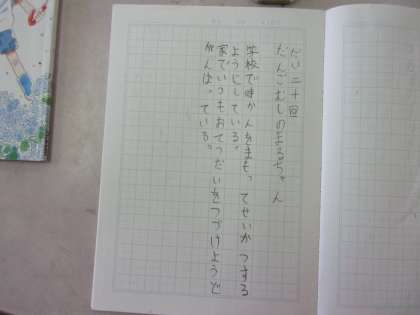 だい二十回
だんごむしのよるちゃん
学校で時かんをまもってせいかつする
ようにしている。
家でいつもおてつだいをつづけようと
がんばっている。